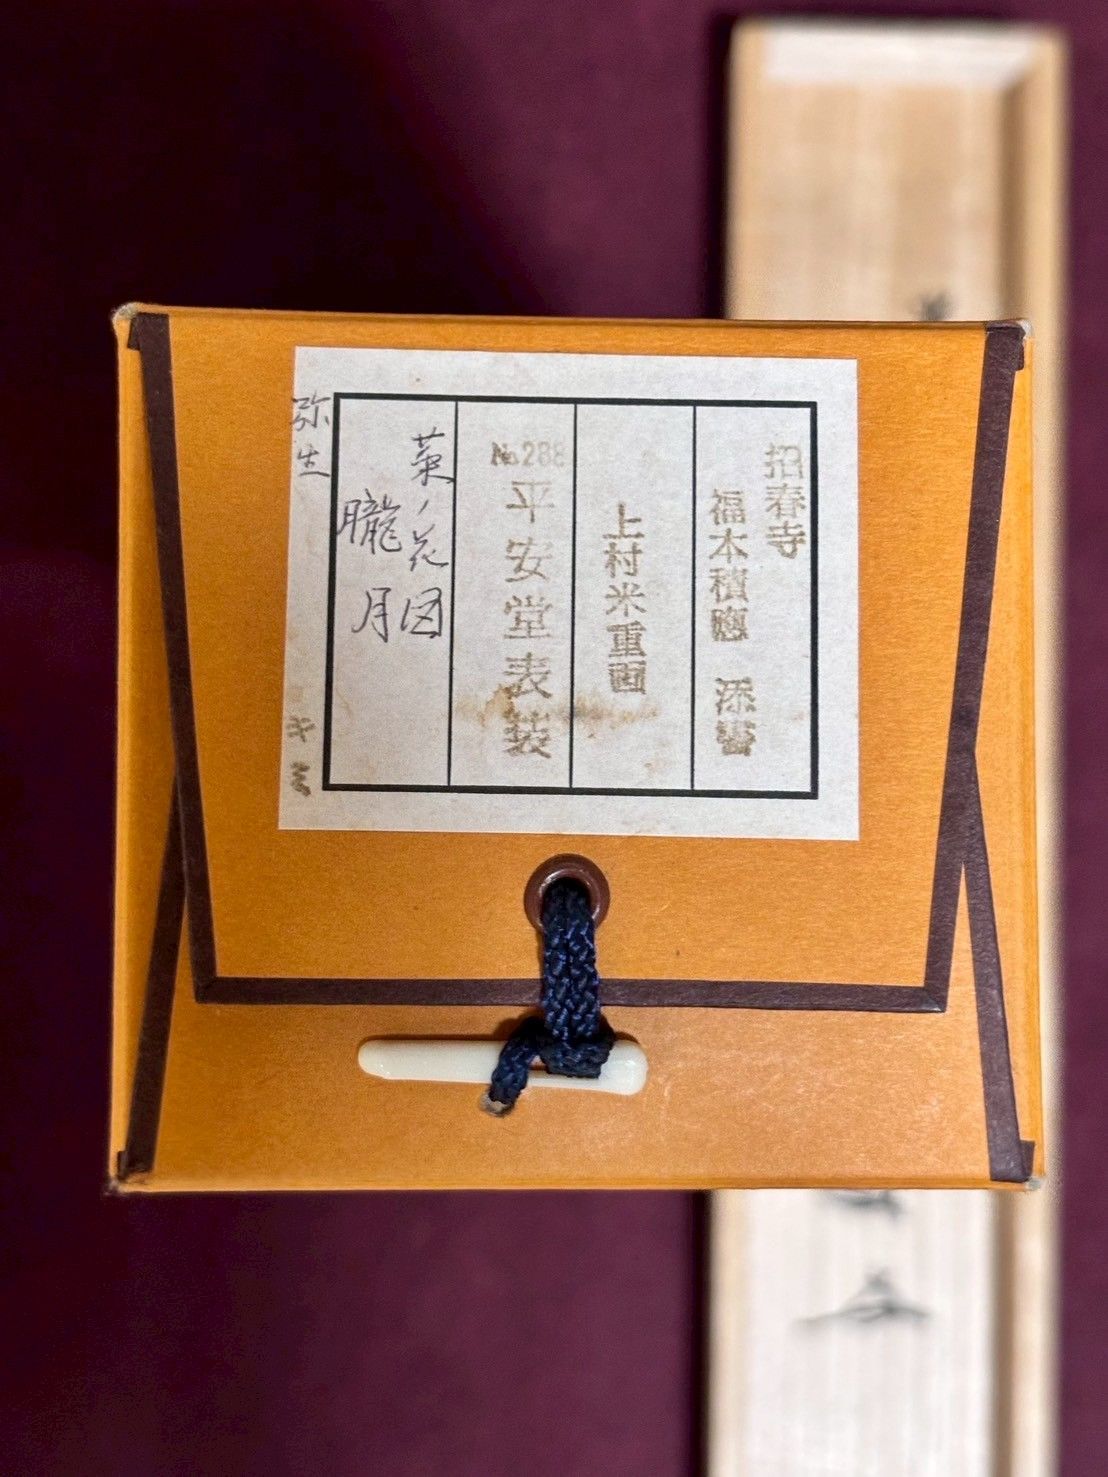 招春寺
福本積應 添書
上村米重画
No.288
平安堂表装
菜ノ花図
朧月
弥生
キミ